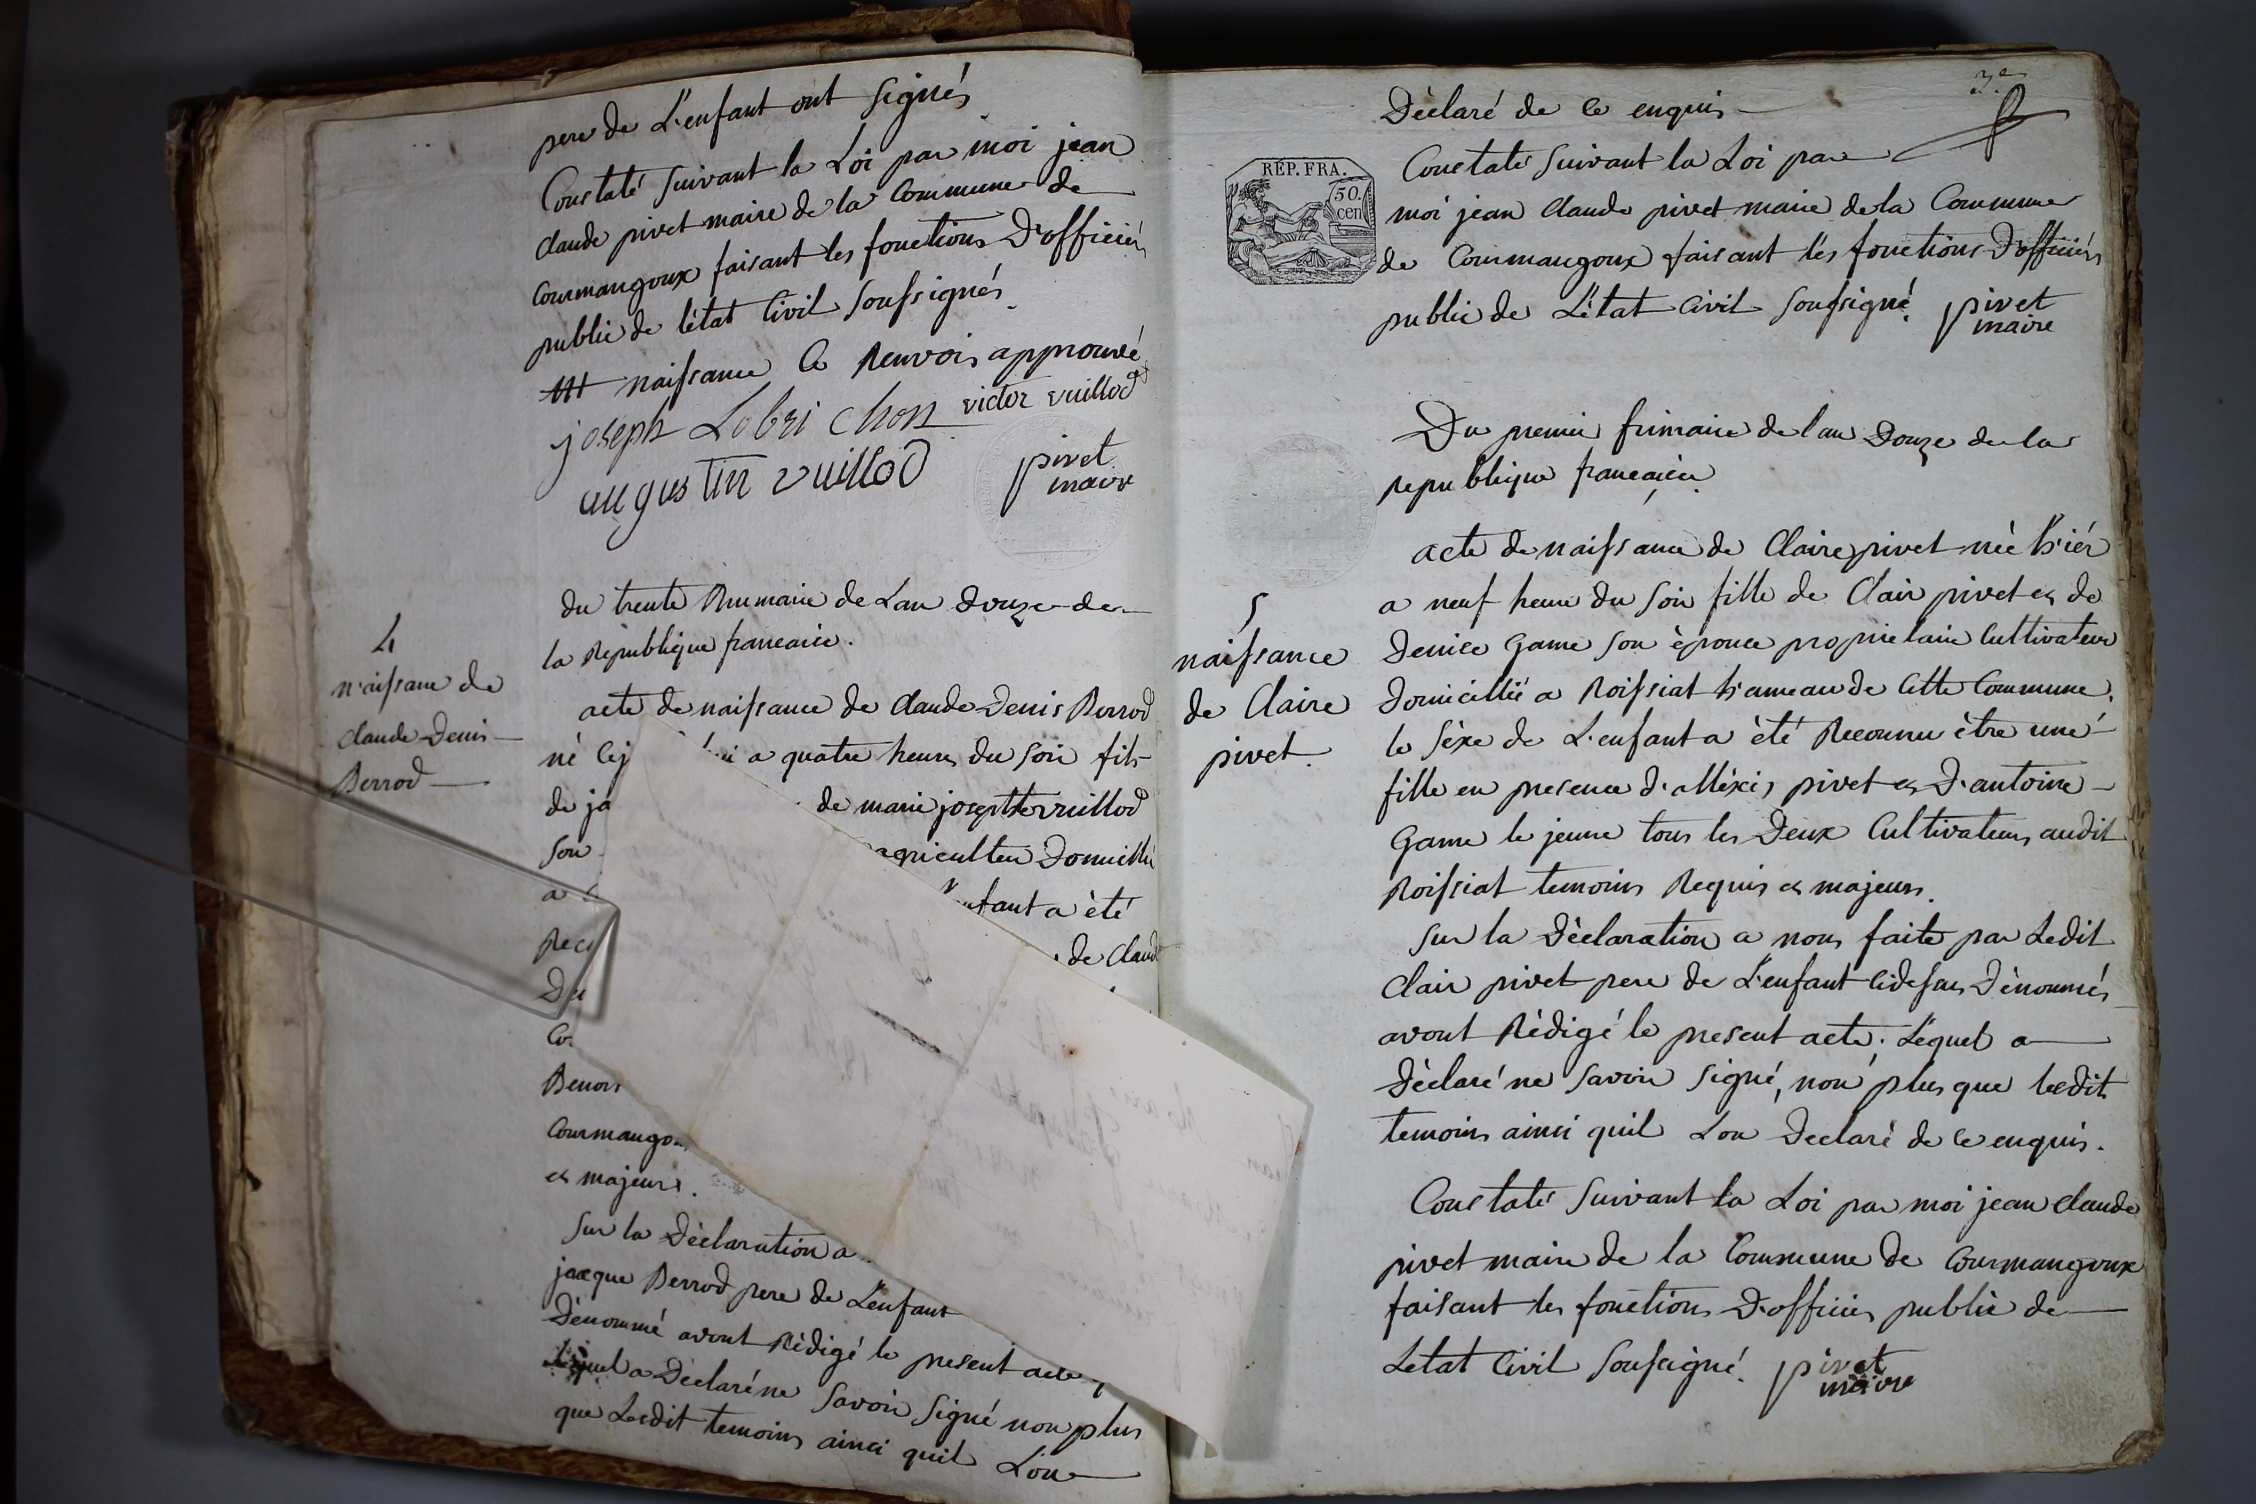 pere de L'enfant ont signés
Constaté suivant la Loi par moi jean
claude pivet maire de la Commune de
Courmangoux faisant les fonctions D'officiér
public de létat Civil soussignés.
naissance Ce Renvois approuvé
joseph Lobri chon victor vuillod
augustin vuillod pivet
maire
du trente Brumaire de Lan douze de
la République francaise.
4
naissance de
claude Denis
Berrod
acte de naissance de claude Denis Berrod
né a quatre heures du soir fils
de ja de marie josepthe vuillod
son agriculteur Domicillié
a
enfant a été
Reco
de claude
Du
Co
Benoi
Courmangou
et majeurs.
sur la Déclaration a
jacque Berrod pere de L'enfant
Dénommé avont Rédigé le present acte
Lequel a Déclaré ne savoir signé non plus
que Lesdit temoins ainci quil Lon
3e
Déclaré de ce enquis
RÉP. FRA.
50.
cen
Constaté suivant la Loi par
moi jean claude pivet maire de la Commune
de Courmangoux faisant lés fonctions D'officiérs
public de L'état Civil soussigné. pivet
maire
Du premier frimaire de lan Douze de la
republique francaise.
5
naissance
de Claire
pivet.
acte de naissance de Claire pivet née hiér
a neuf heure du soir fille de Clair pivet et de
Denise Game son épouce proprietaire Cultivateur
Domicillié a Roissiat hameau de Cette Commune.
le séxe de L'enfant a été Reconnu être une
fille en presence d'alléxis pivet et D'antoine
Game le jeune tous les Deux Cultivateurs audit
Roissiat temoins Requis et majeurs.
sur la Déclaration a nous faite par Ledit
Clair pivet pere de L'enfant Cidessus Dénommés
avont Rédigé le present acte; Léquel a
Déclaré ne savoir signé, non plus que lesdit
temoins ainci quil Lon Declaré de ce enquis.
Constaté suivant la Loi par moi jean claude
pivet maire de la Commune de Courmangoux
faisant les fonctions D'officier public de
Létat Civil soussigné. pivet
maire